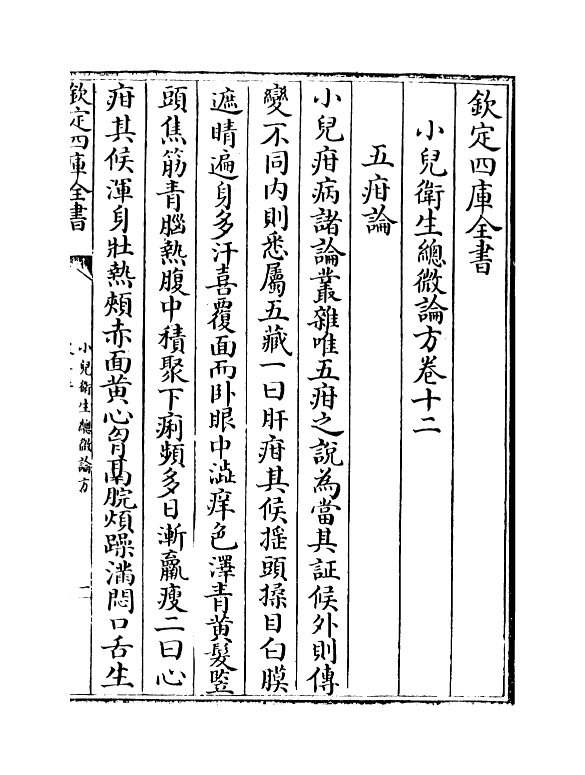 欽定四庫全書
小兒衛生總微論方卷十二
五疳論
小兒疳病諸論叢雜唯五疳之說為當其証候外則傳
變不同内則悉屬五藏一曰肝疳其候揺頭揉目白膜
遮睛遍身多汗喜覆面而卧眼中澁痒色澤青黄髮竪
頭焦筋青腦熱腹中積聚下痢頻多日漸羸瘦二曰心
疳其候渾身壯熱頰赤面黄心胷鬲脘煩躁滿悶口舌生
欽定四庫全書
小兒衛生總微論方
一